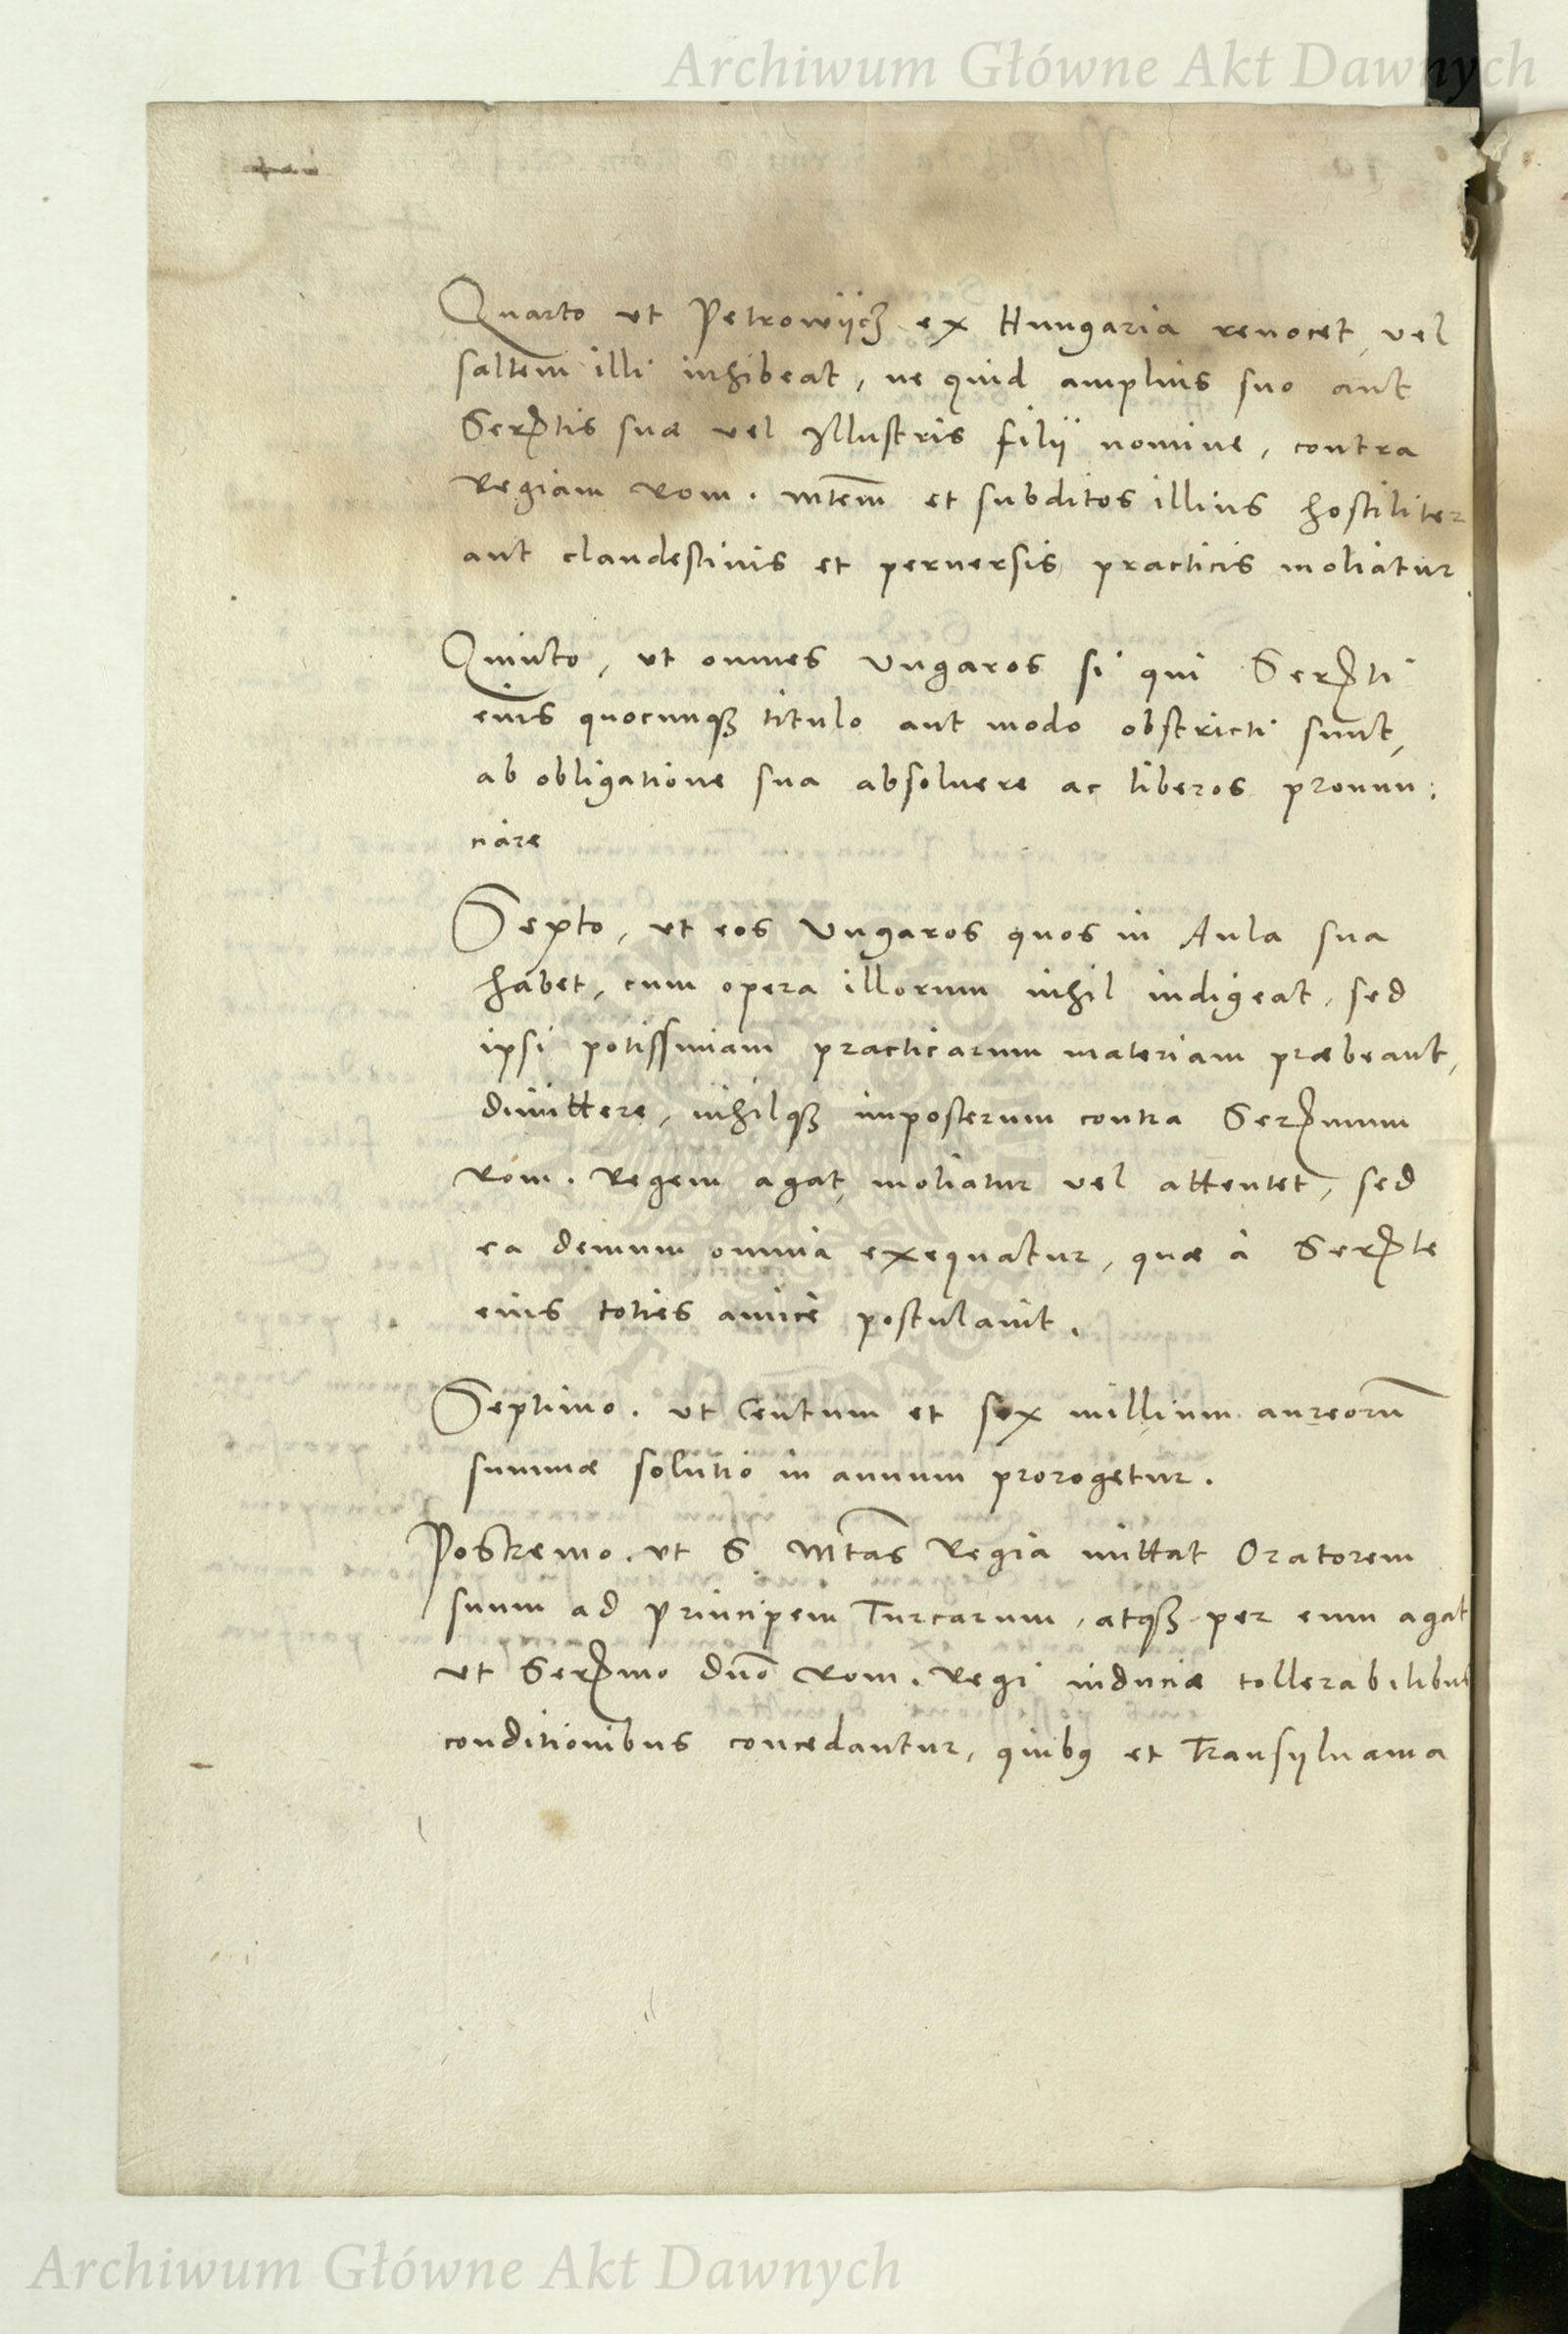 Archiwum Główne Akt Dawnych
Quarto ut Petrowijcz ex Hungaria reuocet, vel
saltem illi inhibeat, ne quid amplius suo aut
Sertis suæ vel Illustris filij nomine, contra
Regiam Rom. Mtem et subditos illius hostiliter
aut clandestinis et peruersis practicis moliatur.
Quinto, ut omnes Vngaros si qui Serti
eius quocunqꝫ titulo aut modo obstricti sunt,
ab obligatione sua absoluere ac liberos pronun:
ciare
Sexto, ut eos Vngaros quos in Aula sua
habet, cum opera illorum nihil indigeat, sed
ipsi potissimam practicarum materiam præbeant,
dimittere, nihilqꝫ imposterum contra Sermum
Rom. Regem agat, moliatur vel attentet, sed
ea demum omnia exequatur, quæ à Serte
eius toties amicè postulauit.
Septimo. ut Centum et sex millium aureorū
summæ solutio in annum prorogetur.
Postremo. ut S. Mtas Regia mittat Oratorem
suum ad Principem Turcarum, atqꝫ per eum agat
ut Sermo dno Rom. Regi induciæ tollerabilibus
conditionibus concedantur, quibꝰ et Transyluania
Archiwum Główne Akt Dawnych